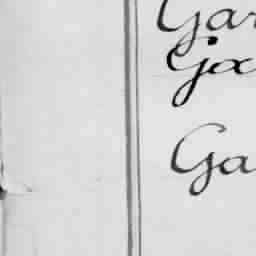 Gar
Ga
Ga